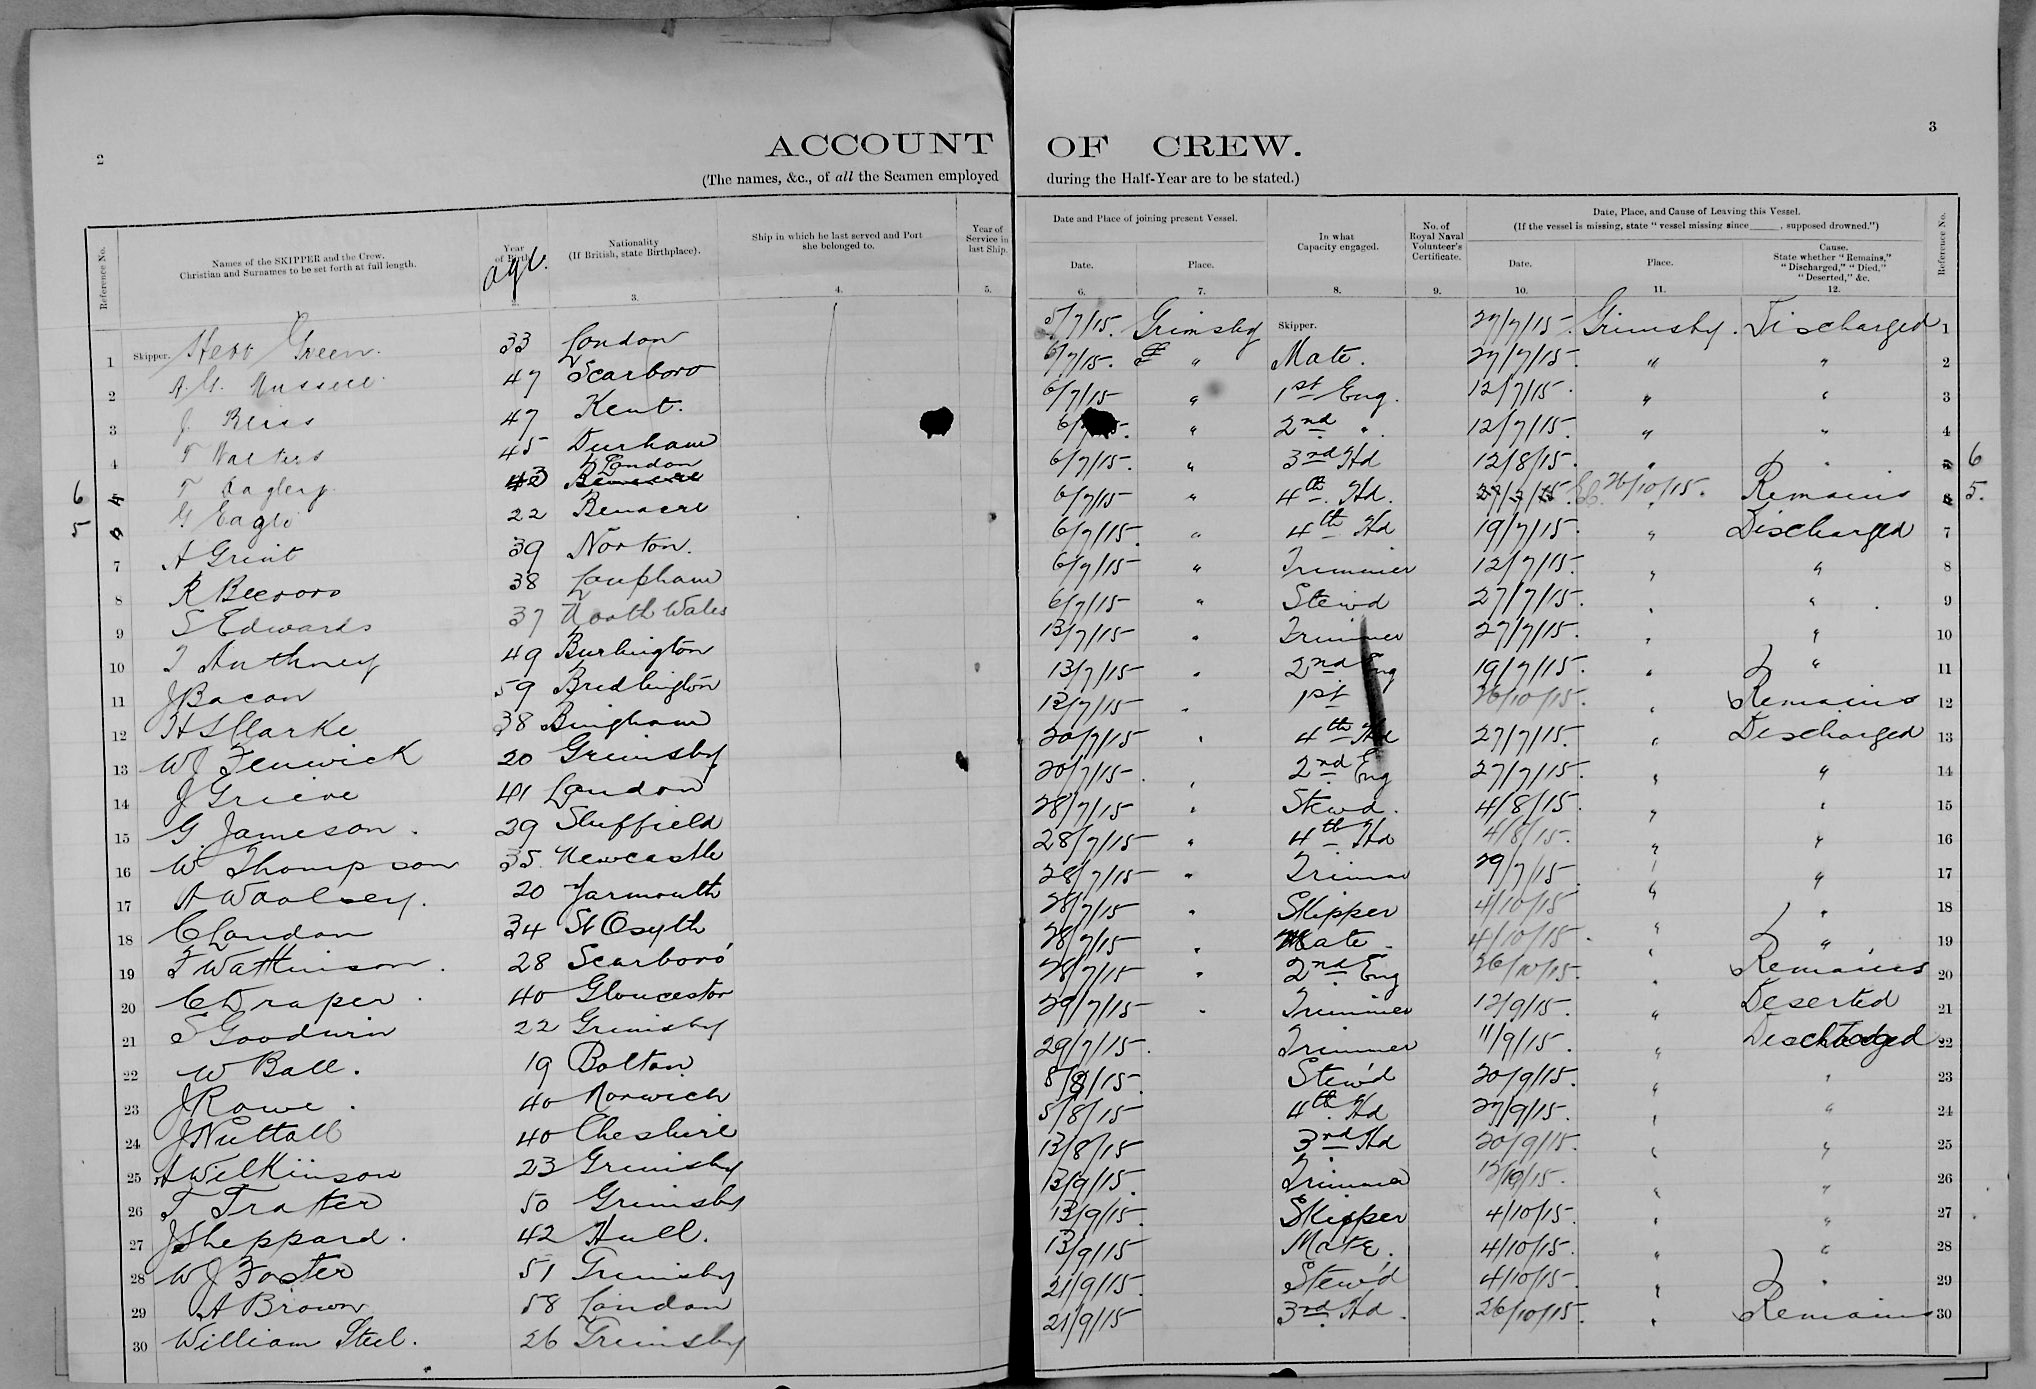 2
ACCOUNT OF CREW.
3
(The names, &c., of all the Seamen employed during the Half-Year are to be stated.)
Reference No.
Names of the SKIPPER and the Crew.
Christian and Surnames to be set forth at full length.
Year of Birth
age.
Nationality
(If British, state Birthplace).
Ship in which he last served and Port she belonged to.
Year of Service in last Ship.
Date and Place of joining present Vessel.
Date.
Place.
In what Capacity engaged.
No. of Royal Naval Volunteer's Certificate.
Date, Place, and Cause of Leaving this Vessel.
(If the vessel is missing, state "vessel missing since ____, supposed drowned.")
Date.
Place.
Cause.
State whether "Remains," "Discharged," "Died," "Deserted," &c.
Reference No.
2. 3. 4. 5. 6. 7. 8. 9. 10. 11. 12.
1 Skipper. Green. 33 London 5/7/15. Grimsby Skipper. 27/7/15. Grimsby. Discharged 1
2 A. G. Russell 47 Scarboro 6/7/15. " Mate. 27/7/15. " " 2
3 J 47 Kent. 6/7/15 " 1st Eng. 12/7/15. " " 3
4 T Walters 45 Durham 6/7/15. " 2nd " 12/7/15. " " 4
6 T 43 London 6/7/15. " 3rd Hd 12/8/15. " " 6
5 G Eagle 22 Benacre 6/7/15 " 4th Hd. 26/10/15. Remains 5.
7 A Grint 39 Norton. 6/7/15. " 4th Hd 19/7/15. " Discharged 7
8 R 38 Loupham 6/7/15 " Trimmer 12/7/15. " " 8
9 S Edwards 37 North Wales 6/7/15 " Stew'd 27/7/15. " " 9
10 T Anthney 49 Burlington 13/7/15 " Trimmer 27/7/15. " " 10
11 J Bacon 59 Bridlington 13/7/15 " 2nd Eng 19/7/15. " " 11
12 H S Clarke 38 Bingham 13/7/15 " 1st 26/10/15. " Remains 12
13 W J Fenwick 20 Grimsby 20/7/15 " 4th Hd 27/7/15. " Discharged 13
14 J Grieve 41 London 20/7/15 " 2nd Eng 27/7/15. " " 14
15 G. Jameson. 29 Sheffield 28/7/15 " Stewd. 4/8/15. " " 15
16 W Thompson 35. Newcastle 28/7/15 " 4th Hd 4/8/15. " " 16
17 A Woolsey. 20 Yarmouth 28/7/15 " Trimmer 29/7/15 " " 17
18 C London 34 St Osyth 28/7/15 " Skipper 4/10/15 " " 18
19 F Watkinson. 28 Scarboro' 28/7/15 " Mate 4/10/15. " " 19
20 C Draper. 40 Gloucester 28/7/15 " 2nd Eng 26/10/15. " Remains 20
21 S Goodwin 22 Grimsby 29/7/15 " Trimmer 12/9/15. " Deserted 21
22 W Ball. 19 Bolton 29/7/15. Trimmer 11/9/15. " Discharged 22
23 J Rowe. 40 Norwich 5/8/15. Stew'd 20/9/15. " " 23
24 J Nuttall 40 Cheshire 5/8/15 4th Hd 27/9/15. " " 24
25 A Wilkinson 23 Grimsby 13/8/15 3rd Hd 20/9/15. " " 25
26 T Tratter 50 Grimsby 13/9/15. Trimmer " " 26
27 J Sheppard. 42 Hull. 13/9/15. Skipper 4/10/15. " " 27
28 W J Foster 51 Grimsby 13/9/15 Mate. 4/10/15. " " 28
29 A Brown 58 London 21/9/15. Stew'd 4/10/15. " " 29
30 William Steel. 26 Grimsby 21/9/15 3rd Hd. 26/10/15. " Remains 30